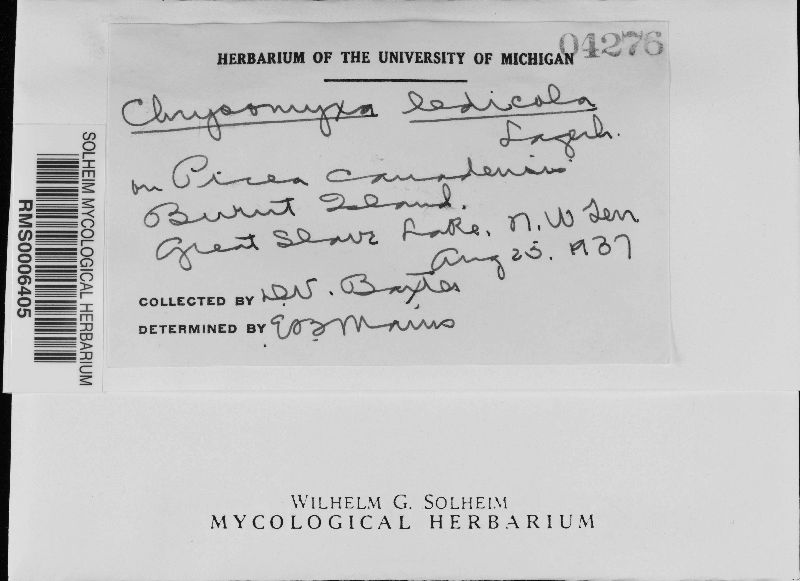 HERBARIUM OF THE UNIVERSITY OF MICHIGAN
04276
Chrysomyxa ledicola
Lagerh.
on Picea canadensis
Burnt Island.
Great Slave Lake. N.W Terr
Aug 25. 1937
COLLECTED BY D.V. Baxter
DETERMINED BY E B Mains
SOLHEIM MYCOLOGICAL HERBARIUM
RMS0006405
WILHELM G. SOLHEIM
MYCOLOGICAL HERBARIUM